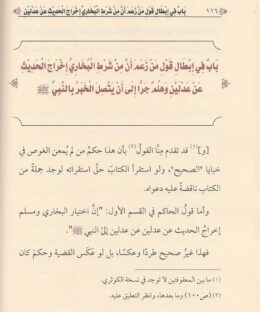 ١١٦ باب في إبطال قول من زعم أن من شرط البخاري إخراج الحديث عن عدلين
بَابٌ فِي إِبْطَالِ قَوْلِ مَنْ زَعَمَ أَنَّ مِنْ شَرْطِ الْبُخَارِيِّ إِخْرَاجَ الْحَدِيثِ
عَنْ عَدْلَيْنِ وَهَلُمَّ جَرًّا إِلَى أَنْ يَتَّصِلَ الْخَبَرُ بِالنَّبِيِّ ﷺ
[و](١) قد تقدم مِنَّا القولُ(٢) بأن هذا حكمُ من لم يُمعن الغوص في
خبايا "الصحيح"، ولو استقرأ الكتابَ حقَّ استقرائه لوجد جملةً من
الكتاب ناقضةً عليه دعواه.
وأما قول الحاكم في القسم الأول: "إنَّ اختيار البخاري ومسلم
إخراجُ الحديث عن عدلين عن عدلين إلى النبي ﷺ".
فهذا غيرُ صحيح طردًا وعكسًا، بل لو عَكَسَ القضية وحكم كان
(١) ما بين المعقوفتين لا توجد في نسخة الكوثري.
(٢) (ص١٠٠) وما بعدها، وانظر التعليق عليه.